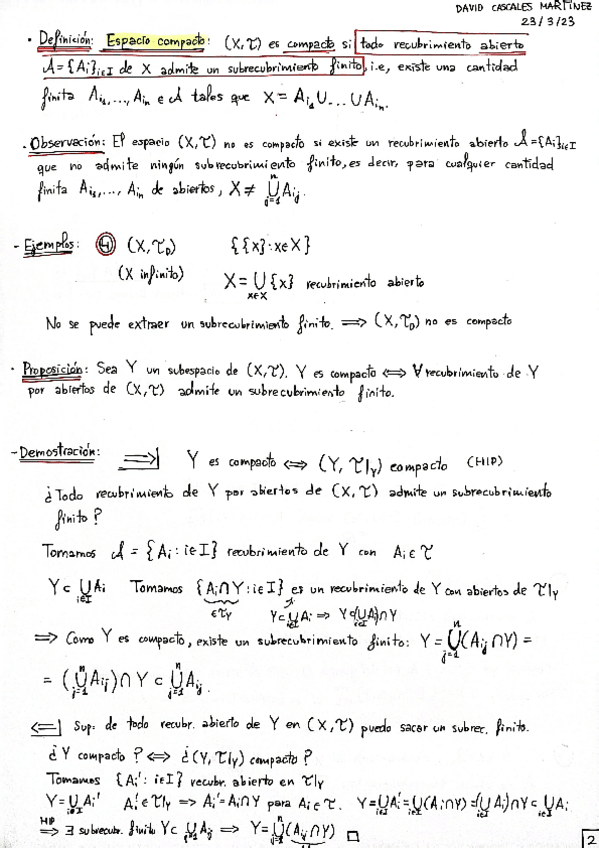 DAVID CASCALES MARTÍNEZ
23/3/23
· Definición: Espacio compacto: (X,τ) es compacto si todo recubrimiento abierto
A={Ai}i∈I de X admite un subrecubrimiento finito, i.e, existe una cantidad
finita Ai1,..., Ain ∈ A tales que X = Ai1 ∪ ... ∪ Ain.
· Observación: El espacio (X,τ) no es compacto si existe un recubrimiento abierto A={Ai}i∈I
que no admite ningún subrecubrimiento finito, es decir, para cualquier cantidad
finita Ai1,..., Ain de abiertos, X ≠ ⋃_{j=1}^{n} Aij.
- Ejemplos: ④ (X,τD) {{x}:x∈X}
(X infinito) X = ⋃_{x∈X} {x} recubrimiento abierto
No se puede extraer un subrecubrimiento finito. ⟹ (X,τD) no es compacto
· Proposición: Sea Y un subespacio de (X,τ). Y es compacto ⟺ ∀ recubrimiento de Y
por abiertos de (X,τ) admite un subrecubrimiento finito.
- Demostración: ⟹| Y es compacto ⟺ (Y, τ|Y) compacto (HIP)
¿Todo recubrimiento de Y por abiertos de (X,τ) admite un subrecubrimiento
finito?
Tomamos A = {Ai : i∈I} recubrimiento de Y con Ai∈τ
Y ⊂ ⋃_{i∈I} Ai Tomamos {Ai∩Y : i∈I} es un recubrimiento de Y con abiertos de τ|Y
∈τY Y⊂⋃_{i∈I} Ai ⟹ Y⊂(⋃_{i∈I} Ai)∩Y
⟹ Como Y es compacto, existe un subrecubrimiento finito: Y = ⋃_{j=1}^{n} (Aij ∩Y) =
= (⋃_{j=1}^{n} Aij)∩Y ⊂ ⋃_{j=1}^{n} Aij.
⟸| Sup. de todo recubr. abierto de Y en (X,τ) puedo sacar un subrec. finito.
¿Y compacto? ⟺ ¿(Y,τ|Y) compacto?
Tomamos {Ai' : i∈I} recubr. abierto en τ|Y
Y = ⋃_{i∈I} Ai' Ai'∈τ|Y ⟹ Ai'=Ai∩Y para Ai∈τ. Y=⋃_{i∈I} Ai'=⋃_{i∈I}(Ai∩Y)=(⋃_{i∈I} Ai)∩Y⊂⋃_{i∈I} Ai
HIP ⟹ ∃ subrecubr. finito Y⊂ ⋃_{j=1}^{n} Aij ⟹ Y=⋃_{j=1}^{n}(Aij∩Y) □
2